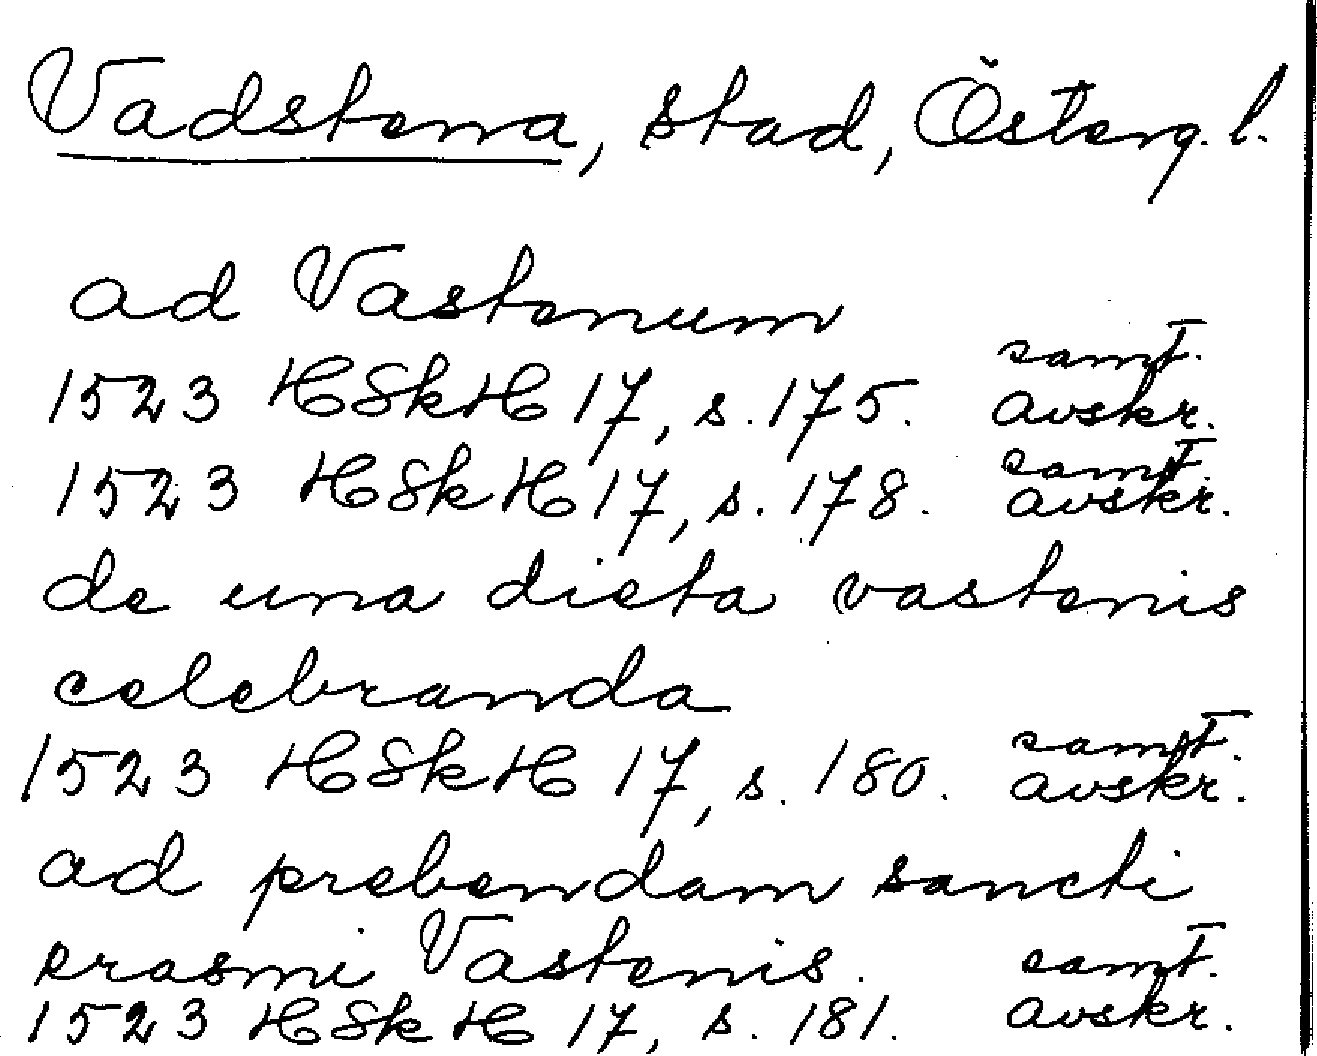 Vadstena, stad, Österg. l.
ad Vastenum
1523 HSkH 17, s. 175. samt. avskr.
1523 HSkH 17, s. 178. samt. avskr.
de una dieta vastenis
celebranda
1523 HSkH 17, s. 180. samt. avskr.
ad prebendam sancti
erasmi Vastenis.
1523 HSkH 17, s. 181. samt. avskr.